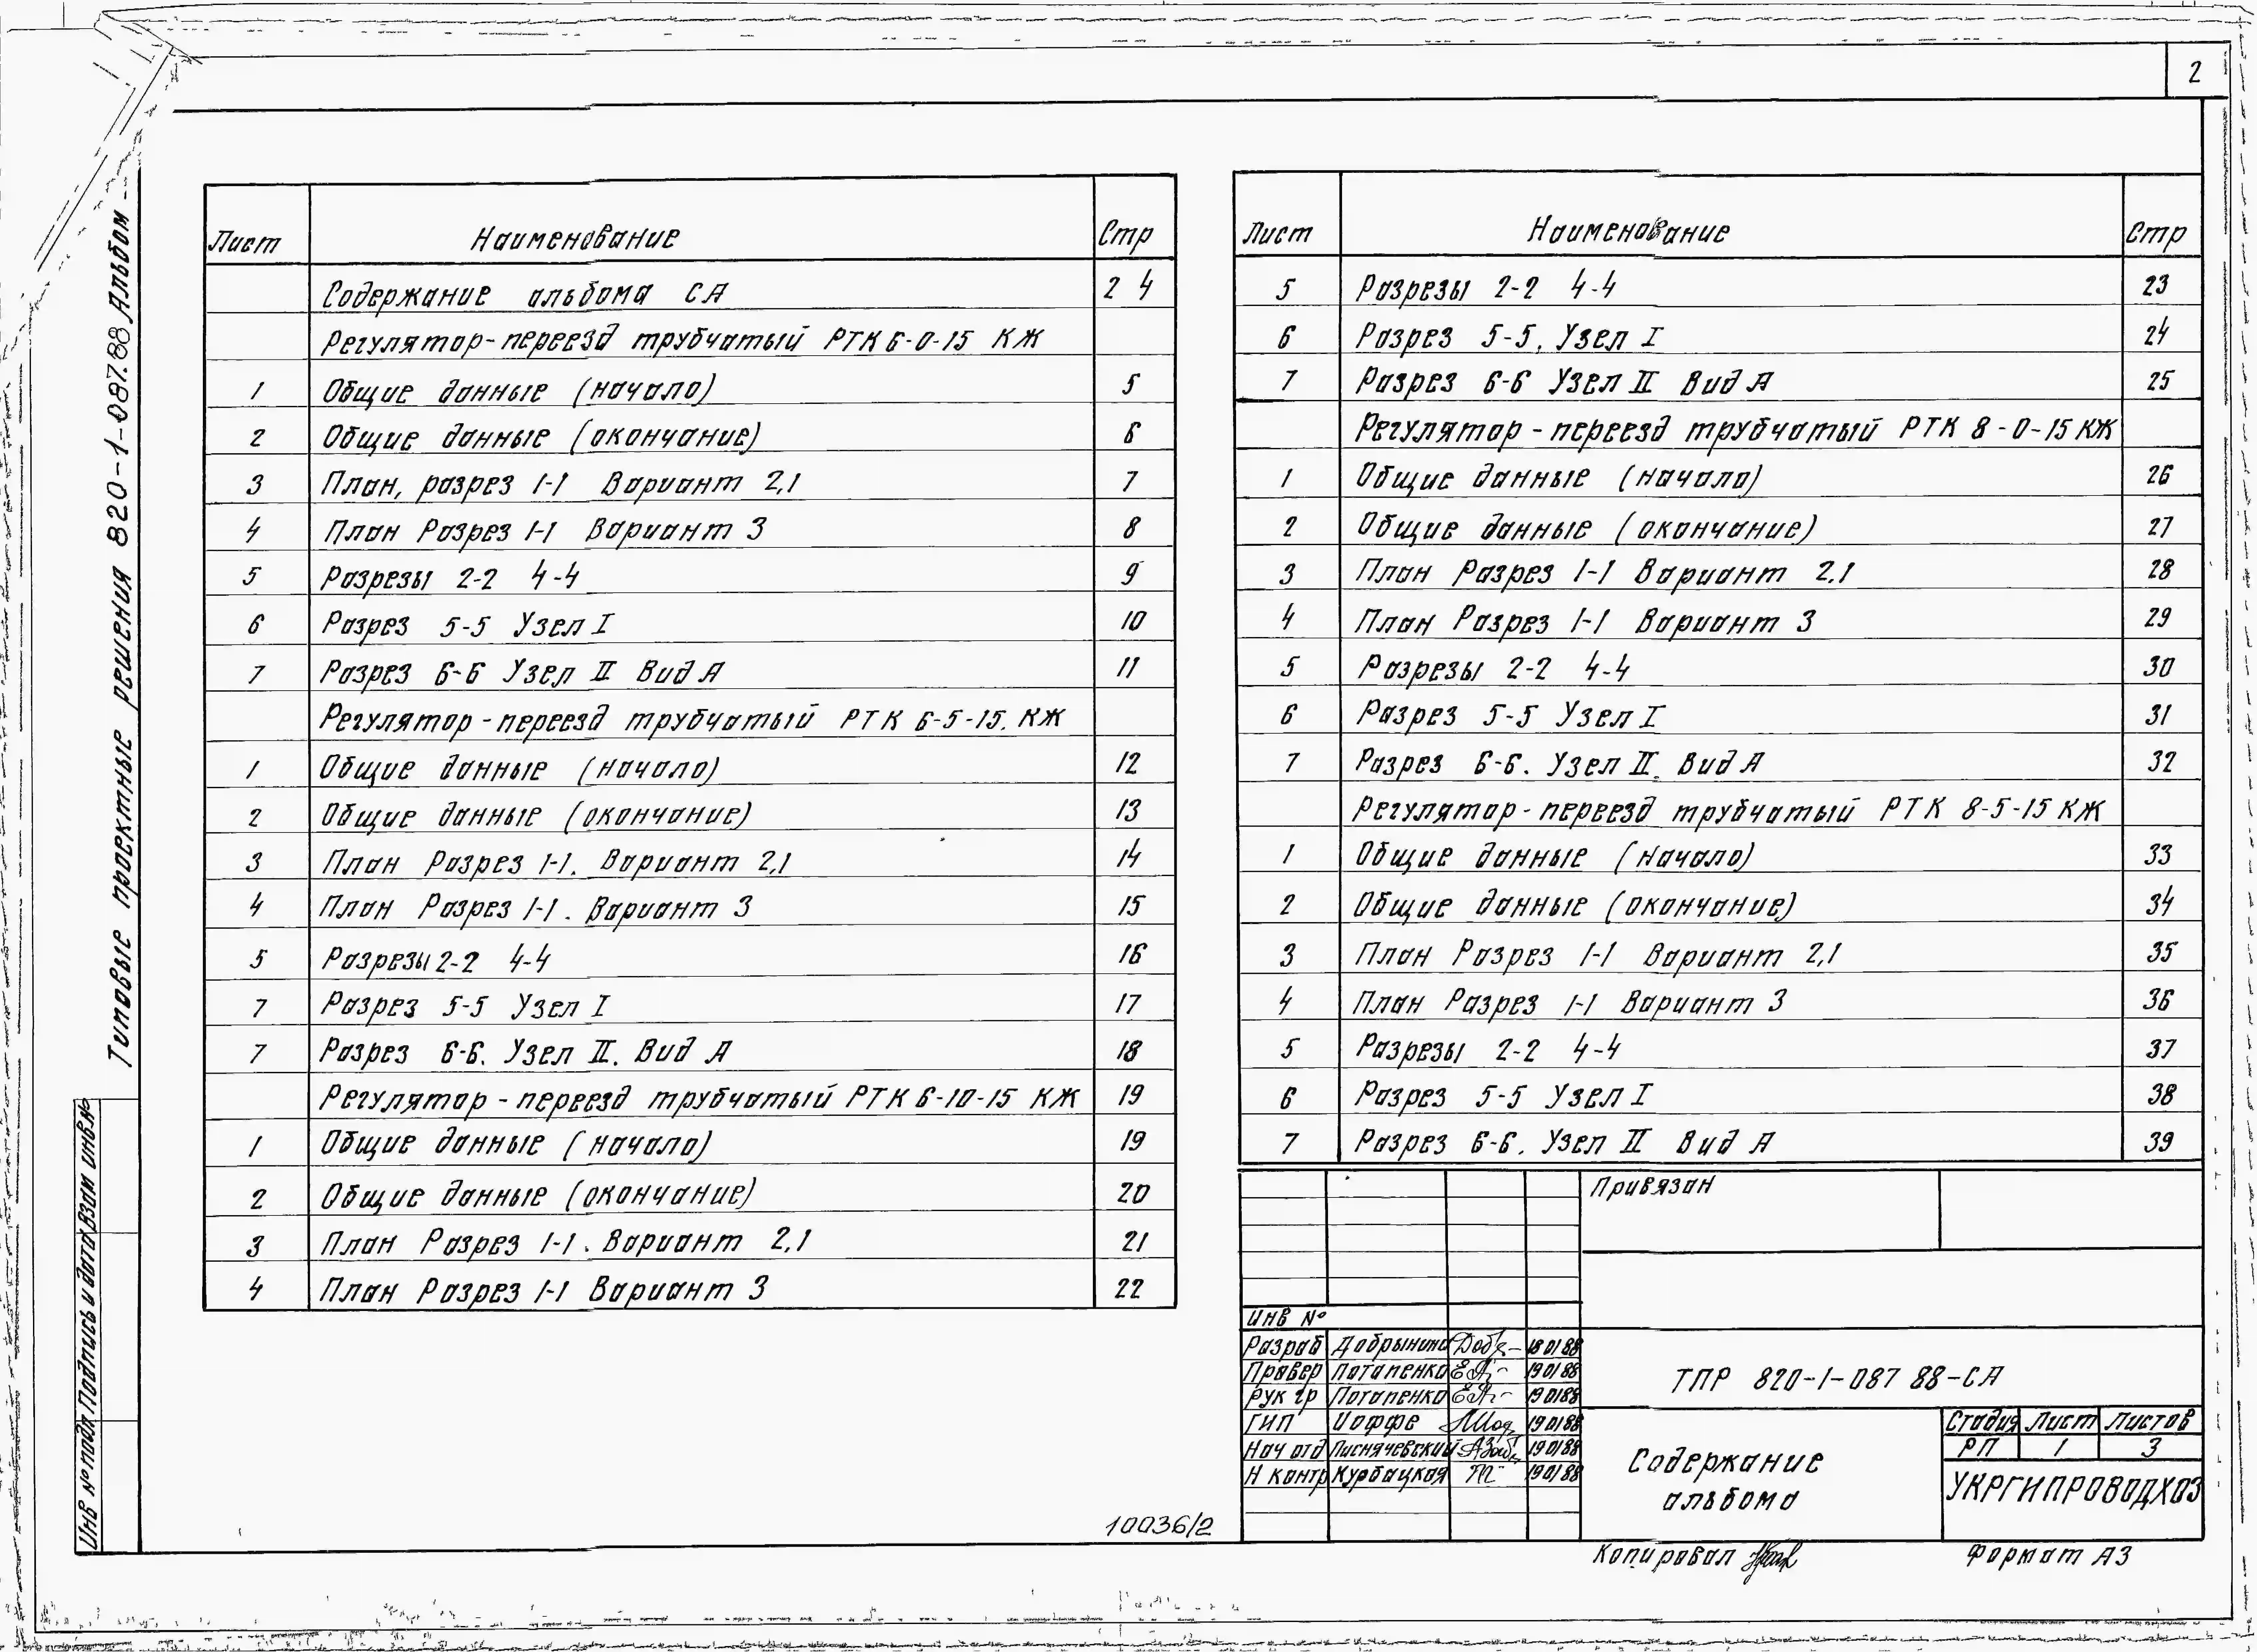 2
Типовые проектные решения 820-1-087.88 Альбом
Лист Наименование Стр
Содержание альбома СА 2 4
Регулятор-переезд трубчатый РТК 6-0-15 КЖ
1 Общие данные (начало) 5
2 Общие данные (окончание) 6
3 План, разрез 1-1 Вариант 2,1 7
4 План Разрез 1-1 Вариант 3 8
5 Разрезы 2-2 4-4 9
6 Разрез 5-5 Узел I 10
7 Разрез 6-6 Узел II Вид А 11
Регулятор-переезд трубчатый РТК 6-5-15. КЖ
1 Общие данные (начало) 12
2 Общие данные (окончание) 13
3 План Разрез 1-1. Вариант 2,1 14
4 План Разрез 1-1. Вариант 3 15
5 Разрезы 2-2 4-4 16
7 Разрез 5-5 Узел I 17
7 Разрез 6-6. Узел II. Вид А 18
Регулятор-переезд трубчатый РТК 6-10-15 КЖ 19
1 Общие данные (начало) 19
2 Общие данные (окончание) 20
3 План Разрез 1-1. Вариант 2,1 21
4 План Разрез 1-1 Вариант 3 22
Лист Наименование Стр
5 Разрезы 2-2 4-4 23
6 Разрез 5-5. Узел I 24
7 Разрез 6-6 Узел II Вид А 25
Регулятор-переезд трубчатый РТК 8-0-15 КЖ
1 Общие данные (начало) 26
2 Общие данные (окончание) 27
3 План Разрез 1-1 Вариант 2,1 28
4 План Разрез 1-1 Вариант 3 29
5 Разрезы 2-2 4-4 30
6 Разрез 5-5 Узел I 31
7 Разрез 6-6. Узел II. Вид А 32
Регулятор-переезд трубчатый РТК 8-5-15 КЖ
1 Общие данные (начало) 33
2 Общие данные (окончание) 34
3 План Разрез 1-1 Вариант 2,1 35
4 План Разрез 1-1 Вариант 3 36
5 Разрезы 2-2 4-4 37
6 Разрез 5-5 Узел I 38
7 Разрез 6-6. Узел II Вид А 39
Привязан
Инв №
Разраб Добрынина 18 01 88
Провер Потапенко 19 01 88
Рук гр Потапенко 19 01 88
ГИП Иоффе 19 01 88
Нач отд Лиснячевский 19 01 88
Н контр Курбацкая 19 01 88
ТПР 820-1-087 88-СА
Содержание
альбома
Стадия Лист Листов
РП 1 3
УКРГИПРОВОДХОЗ
Инв № подл Подпись и дата Взам инв №
10036/2
Копировал
Формат А3